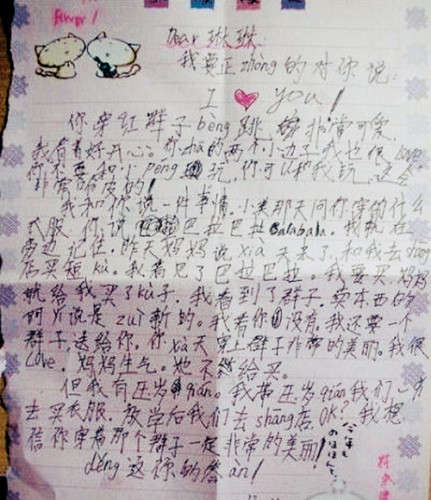 Dear 琳琳:
我要正zhòng的对你说:
I you!
你穿红群子bèng跳, 非常可爱,
我看着好开心。你 的两个小边子我也很love
你不要和小pàng 玩,你可以和我玩,
非常 皮的!
我和你说一件事情,小美那天问你穿的什么
衣服,你说 巴拉巴拉balabala。我就在
旁边记住,昨天妈妈说xià天来了,和我去shāng
店买短kù。我看见了巴拉巴拉。我要买,妈妈
就给我买了kù子,我看到了群子,卖东西的
阿yí说是zuì新的。我看你 没有,我还要一个
群子送给你,你xià天穿上群子非常的美丽。我很
love,妈妈生气。她不 给买。
但我有压岁qián。我带压岁qián我们一
去买衣服,放学后我们去shāng店,OK?我想
信你穿着那个群子一定非常的美丽!
děng这你的答àn!